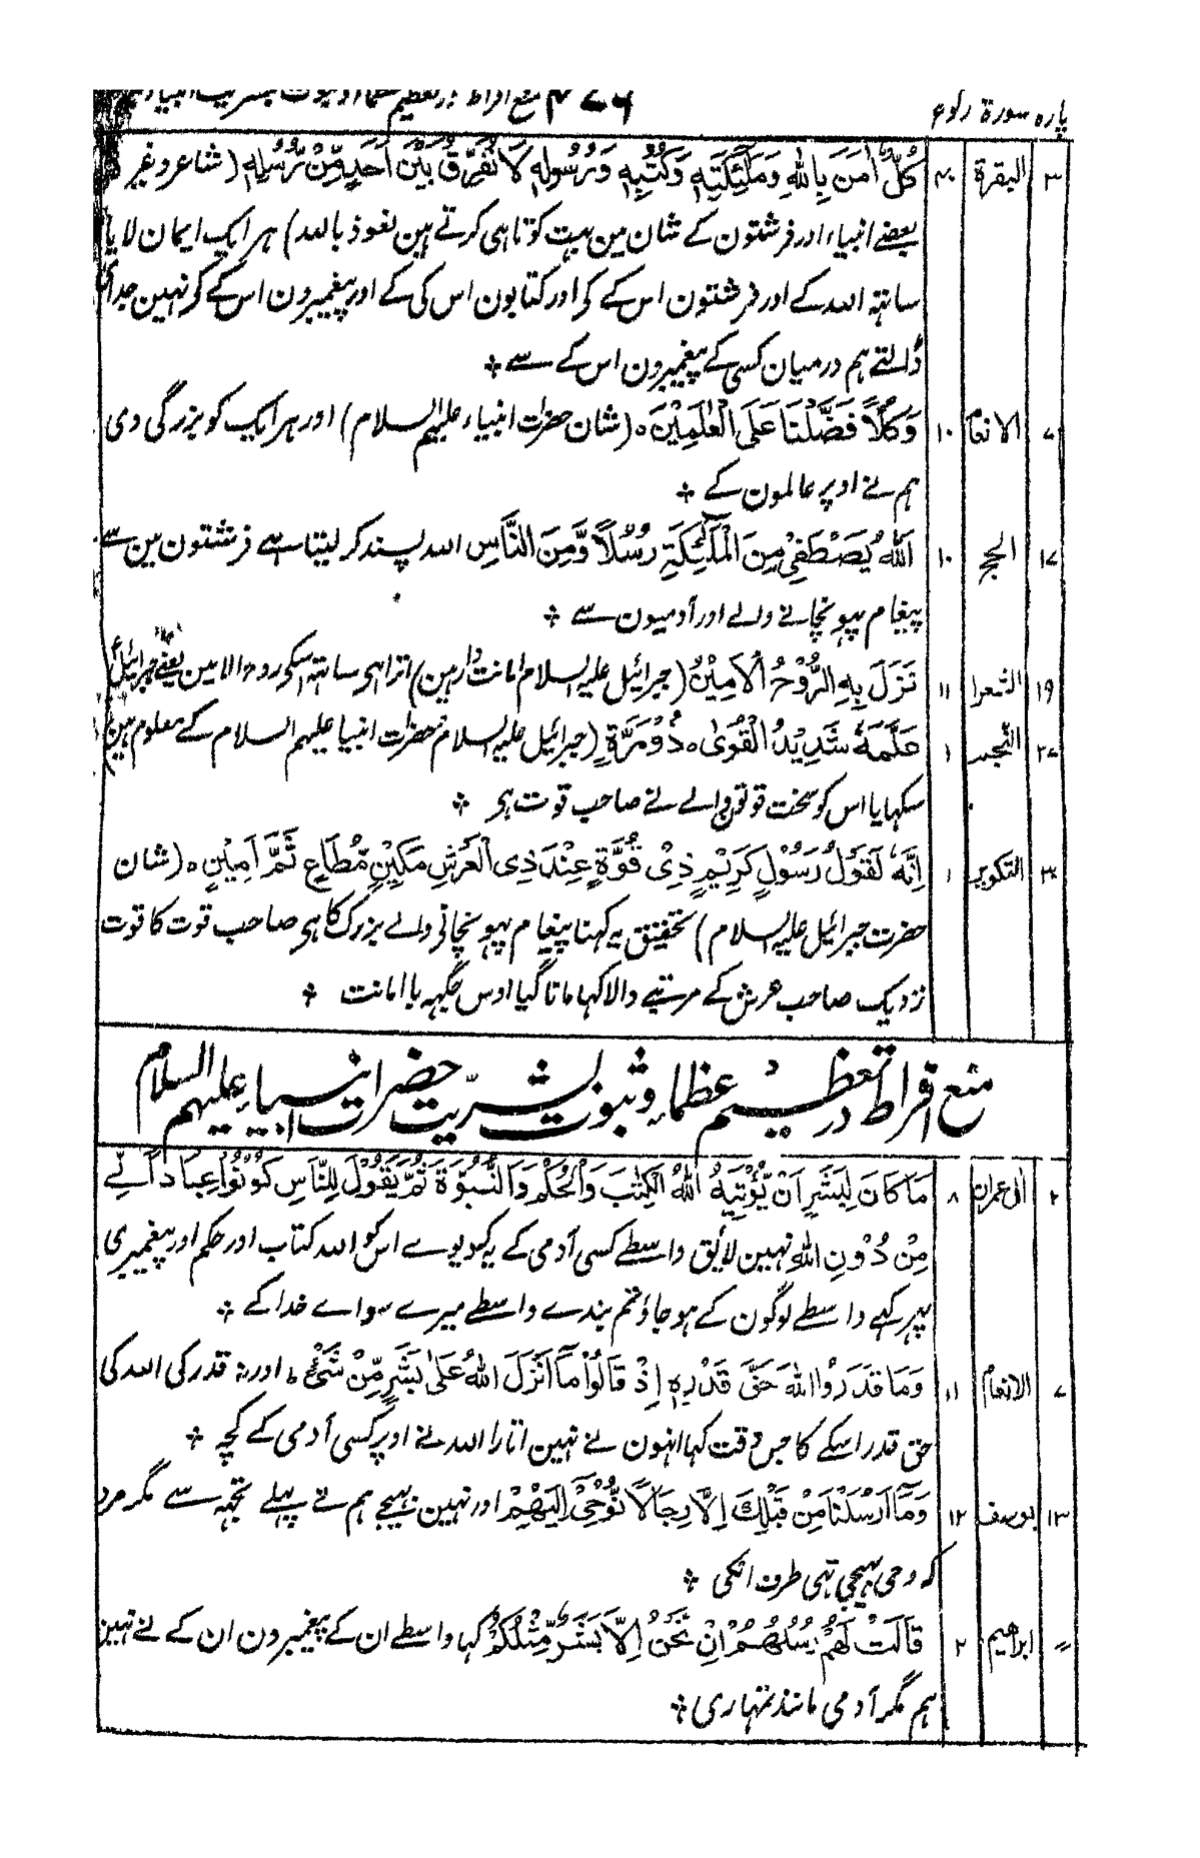 پارہ سورۃ رکوع
۳ البقرۃ ۴۰ كُلٌّ اٰمَنَ بِاللّٰهِ وَمَلٰٓئِكَتِهٖ وَكُتُبِهٖ وَرُسُلِهٖ لَا نُفَرِّقُ بَيْنَ اَحَدٍ مِّنْ رُّسُلِهٖ (شاعر وغیرہ
بعضے انبیاء اور فرشتون کے شان مین بہت کوتاہی کرتے ہین نعوذ باللہ) ہر ایک ایمان لایا
ساتھ اللہ کے اور فرشتون اس کے کو اور کتابون اس کی کے اور پیغمبرون اس کے کر نہین جدائی
ڈالتے ہم درمیان کسی کے پیغمبرون اس کے سے ❊
۷ الانعام ۱۰ وَكُلًّا فَضَّلْنَا عَلَى الْعٰلَمِيْنَ ہ (شان حضرات انبیاء علیہم السلام) اور ہر ایک کو بزرگی دی
ہم نے اوپر عالمون کے ❊
۱۷ الحج ۱۰ اَللّٰهُ يَصْطَفِيْ مِنَ الْمَلٰٓئِكَةِ رُسُلًا وَّمِنَ النَّاسِ اللہ پسند کر لیتا ہے فرشتون مین سے
پیغام پہونچانے والے اور آدمیون سے ❊
۱۹ الشعرا ۱۱ نَزَلَ بِهِ الرُّوْحُ الْاَمِيْنُ (جبرائیل علیہ السلام امانت دار ہین) اترا ہی ساتھ اسکی روح الامین یعنے جبرائیل
۲۷ النجم ۱ عَلَّمَهٗ شَدِيْدُ الْقُوٰى ہ ذُوْ مِرَّةٍ (جبرائیل علیہ السلام حضرات انبیا علیہم السلام کے معلوم ہین)
سکہایا اس کو سخت قوتون والے نے صاحب قوت ہی ❊
۳۰ التکویر ۱ اِنَّهٗ لَقَوْلُ رَسُوْلٍ كَرِيْمٍ ذِيْ قُوَّةٍ عِنْدَ ذِي الْعَرْشِ مَكِيْنٍ مُّطَاعٍ ثَمَّ اَمِيْنٍ ہ (شان
حضرت جبرائیل علیہ السلام) تحقیق یہ کہنا پیغام پہونچانی والے بزرگ کا ہی صاحب قوت کا قوت
نزدیک صاحب عرش کے مرتبے والا کہا مانا گیا اوس جگہہ با امانت ❊
منع افراط در تعظیم عظماء و ثبوت بشریت حضرات انبیاء علیہم السلام
۳ ال عمران ۸ مَا كَانَ لِبَشَرٍ اَنْ يُّؤْتِيَهُ اللّٰهُ الْكِتٰبَ وَالْحُكْمَ وَالنُّبُوَّةَ ثُمَّ يَقُوْلَ لِلنَّاسِ كُوْنُوْا عِبَادًا لِّيْ
مِنْ دُوْنِ اللّٰهِ نہین لائق واسطے کسی آدمی کے یہ کہ دیوے اس کو اللہ کتاب اور حکم اور پیغمبری
پہر کہے واسطے لوگون کے ہو جاؤ تم بندے واسطے میرے سواے خدا کے ❊
۷ الانعام ۱۱ وَمَا قَدَرُوا اللّٰهَ حَقَّ قَدْرِهٖ اِذْ قَالُوْا مَآ اَنْزَلَ اللّٰهُ عَلٰى بَشَرٍ مِّنْ شَيْءٍ ط اور نہ قدر کی اللہ کی
حق قدر اسکے کا جس وقت کہا انہون نے نہین اتارا اللہ نے اوپر کسی آدمی کے کچہ ❊
۱۳ یوسف ۱۲ وَمَآ اَرْسَلْنَا مِنْ قَبْلِكَ اِلَّا رِجَالًا نُّوْحِيْٓ اِلَيْهِمْ اور نہین بہیجے ہم نے پہلے تجہہ سے مگر مرد
کہ وحی بہیجی تہی طرف انکی ❊
〃 ابراہیم ۲ قَالَتْ لَهُمْ رُسُلُهُمْ اِنْ نَّحْنُ اِلَّا بَشَرٌ مِّثْلُكُمْ کہا واسطے ان کے پیغمبرون ان کے نے نہین
ہم مگر آدمی مانند تمہاری ❊